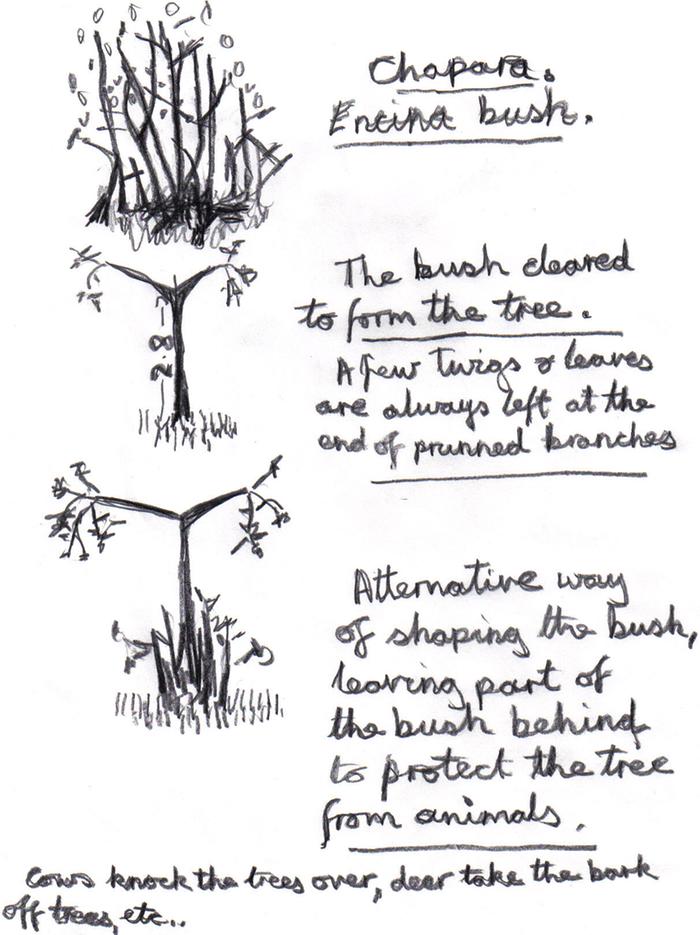 Chapara.
Encina bush.
The bush cleared
to form the tree.
2.8
A few twigs & leaves
are always left at the
end of prunned branches
Alternative way
of shaping the bush,
leaving part of
the bush behind
to protect the tree
from animals.
Cows knock the trees over, deer take the bark
off trees, etc..